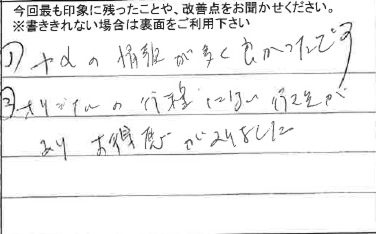 今回最も印象に残ったことや、改善点をお聞かせください。
※書ききれない場合は裏面をご利用下さい
① の情報が多く良かったです
② オリジナルの行程にない行程が
あり お得感がありました